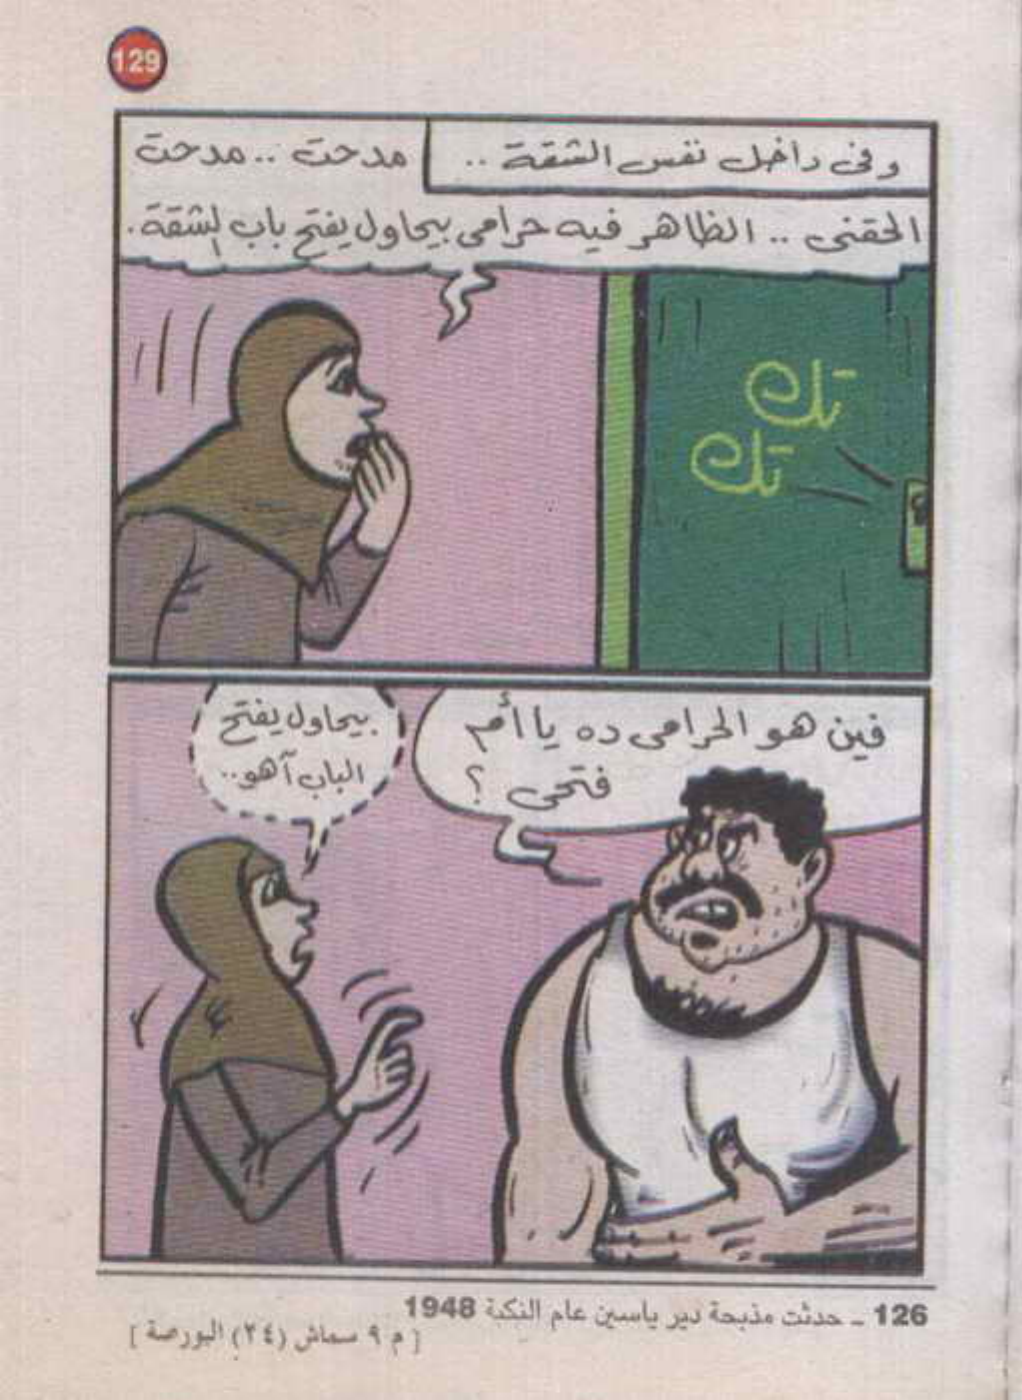 129
وفى داخل نفس الشقة ..
مدحت .. مدحت
الحقنى .. الظاهر فيه حرامى بيحاول يفتح باب الشقة.
تك
تك
فين هو الحرامى ده يا أم
فتحى ؟
بيحاول يفتح
الباب آهو..
126 ـ حدثت مذبحة دير ياسين عام النكبة 1948
[ م ٩ سماش (٢٤) البورصة ]